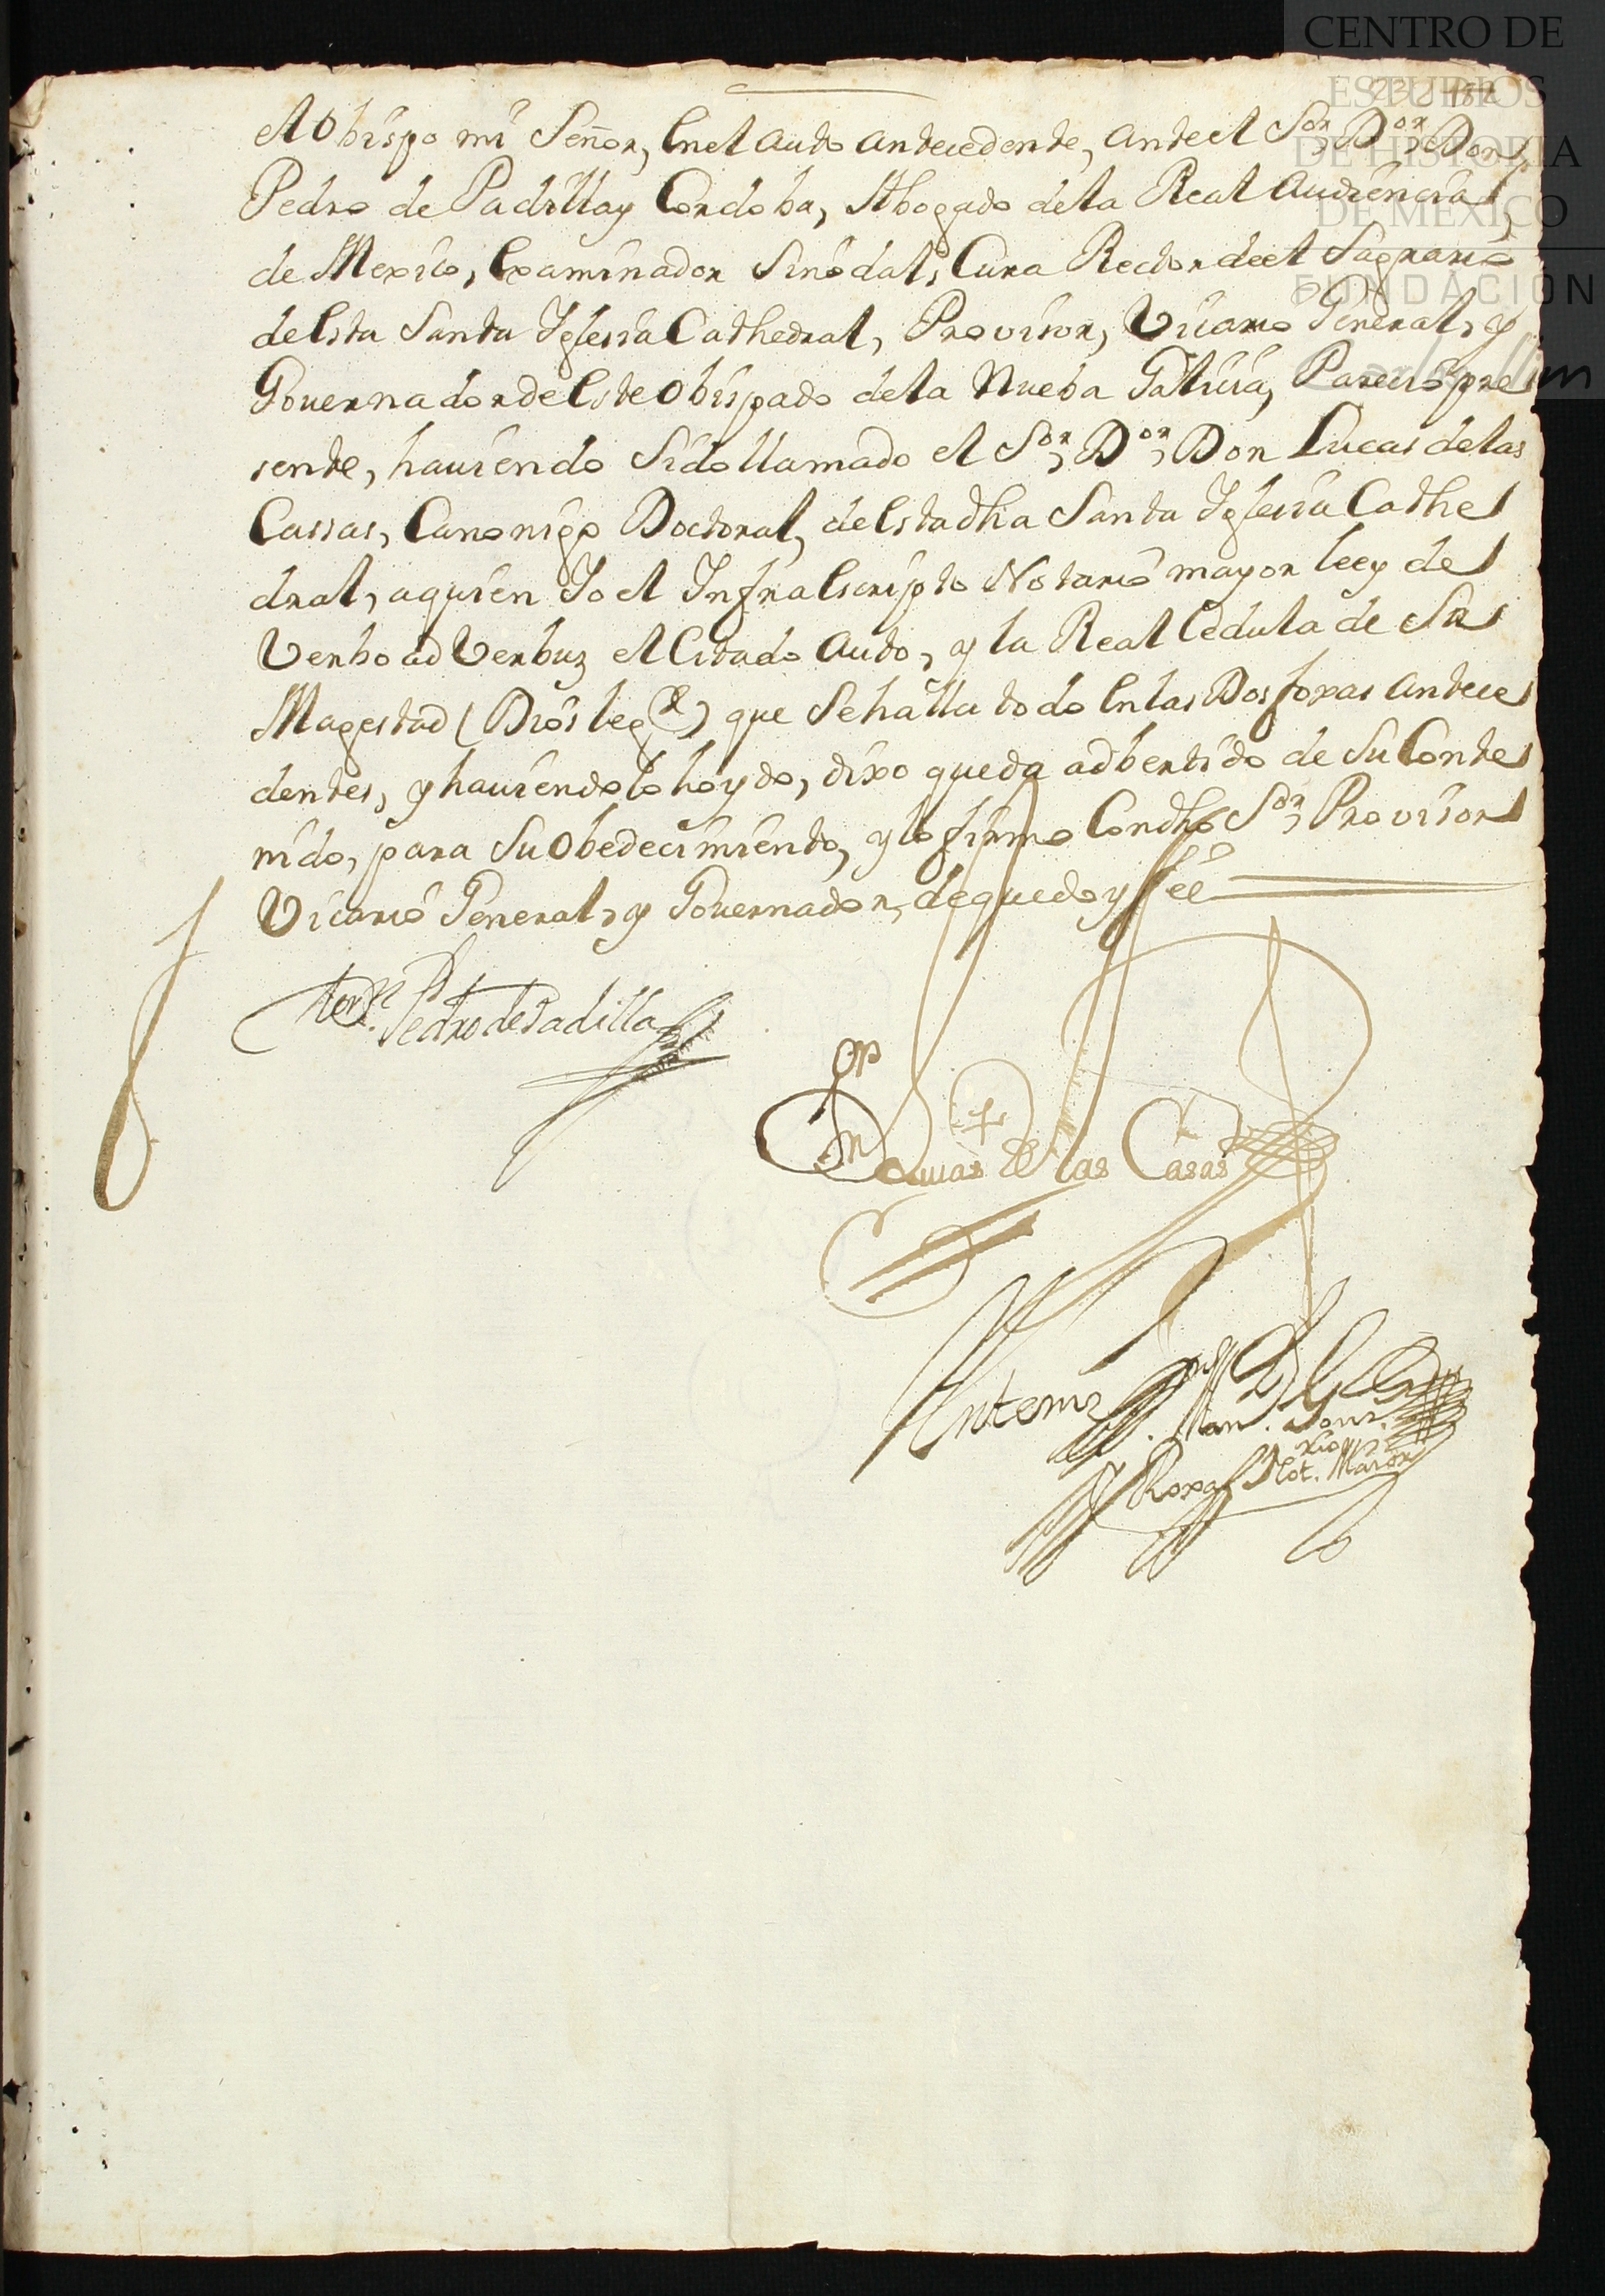 CENTRO DE
ESTUDIOS
DE HISTORIA
DE MÉXICO
FUNDACIÓN
el Obispo mi Señor, en el auto antecedente, ante el Sor, Dor, Don
Pedro de Padilla y Cordoba, Abogado de la Real Audiencia
de Mexico, Examinador Sinodal, Cura Rector de el Sagrario
de esta Santa Yglesia Cathedral, Provisor, Vicario General, y
Gouernador de este Obispado de la Nueba Galicia, Parecio pre
sente, hauiendo sido llamado el Sor, Dor, Don Lucas de las
Cassas, Canonigo Doctoral, de esta dha Santa Yglesia Cathe
dral, a quien Yo el Infraescripto Notario mayor leey de
Verbo ad Verbuz el Citado Auto, y la Real Cedula de Su
Magestad (Dios le ge) que se halla todo en las Dos foxas antece
dentes, y hauiendolo hoydo, dixo queda adbertido de su Conte
nido, para su Obedecimiento, y lo firmo Con dho Sor, Provisor
Vicario General, y Gouernador, de que doy fee
Pedro de Padilla
Lucas de las Casas
Ante mi
Roxas Not. Maior